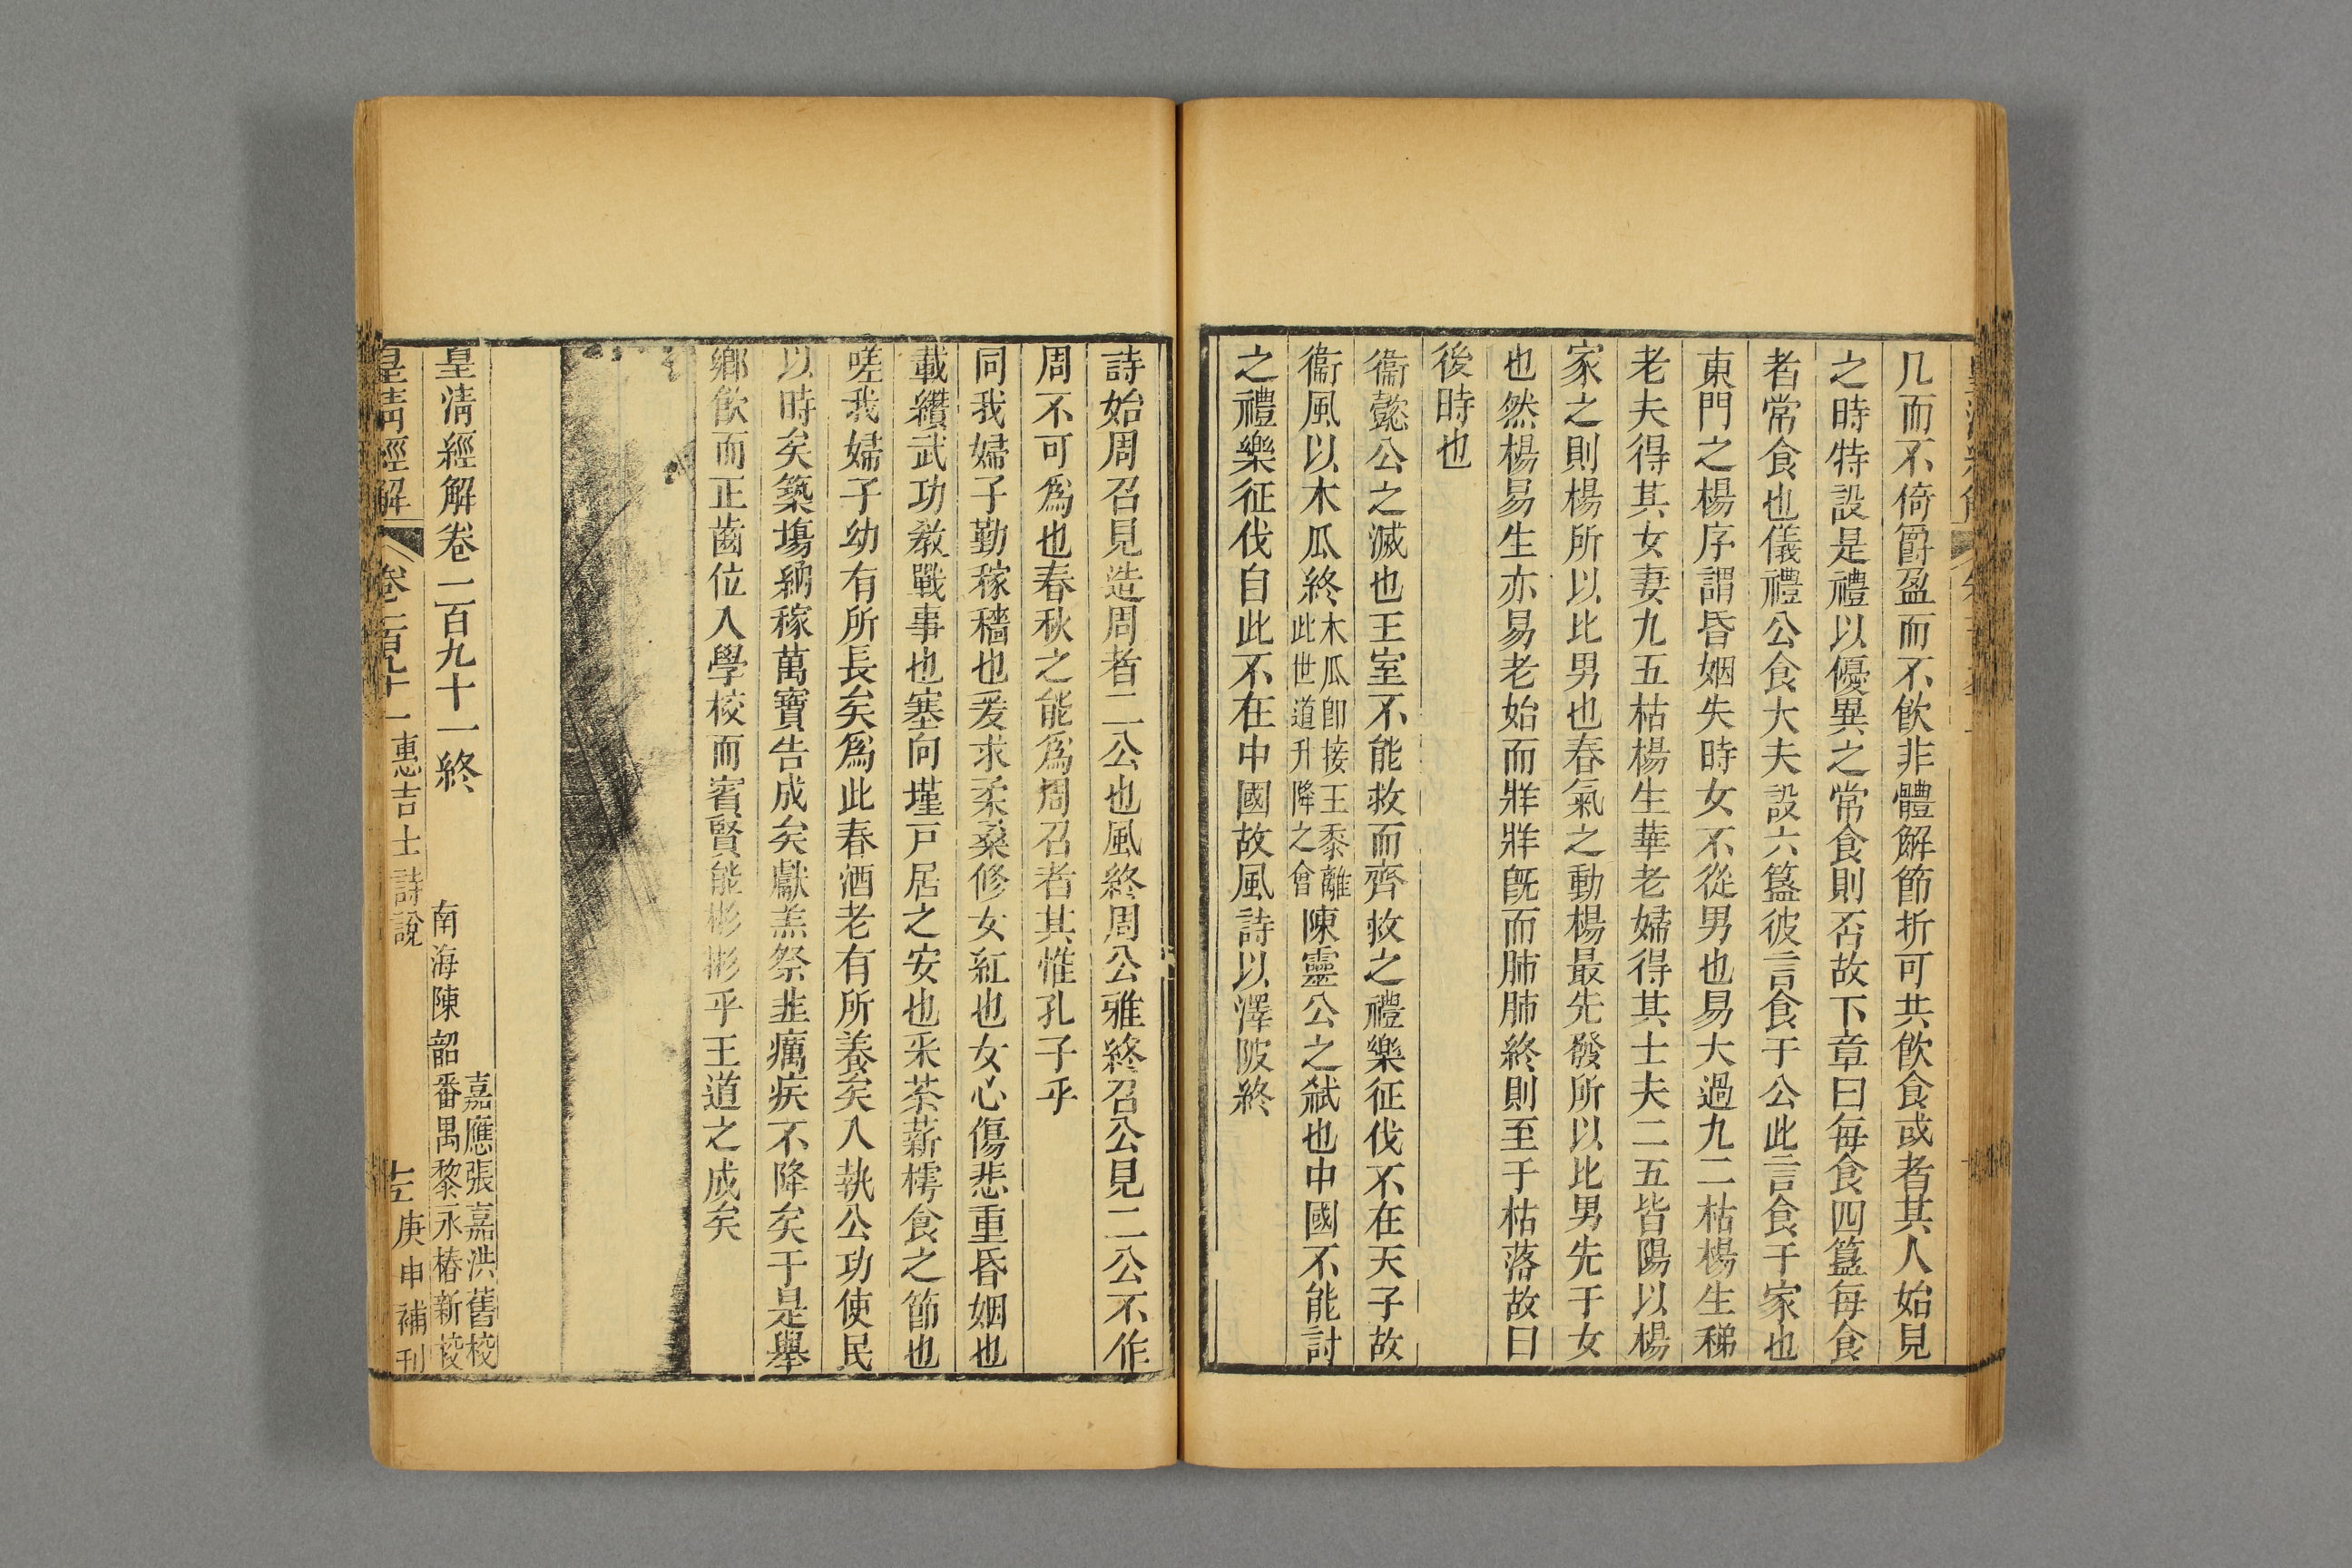 几而不倚爵盈而不飲非體解節折可共飲食或者其人始見
之時特設是禮以優異之常食則否故下章曰每食四簋每食
者常食也儀禮公食大夫設六簋彼言食于公此言食于家也
東門之楊序謂昏姻失時女不從男也易大過九二枯楊生稊
老夫得其女妻九五枯楊生華老婦得其士夫二五皆陽以楊
家之則楊所以比男也春氣之動楊最先發所以比男先于女
也然楊易生亦易老始而牂牂旣而肺肺終則至于枯落故曰
後時也
衞懿公之滅也王室不能救而齊救之禮樂征伐不在天子故
衞風以木瓜終木瓜卽接王黍離此世道升降之會陳靈公之弑也中國不能討
之禮樂征伐自此不在中國故風詩以澤陂終
詩始周召見造周者二公也風終周公雅終召公見二公不作
周不可爲也春秋之能爲周召者其惟孔子乎
同我婦子勤稼穡也爰求柔桑修女紅也女心傷悲重昏姻也
載纘武功敎戰事也塞向墐戸居之安也采荼薪樗食之節也
嗟我婦子幼有所長矣爲此春酒老有所養矣入執公功使民
以時矣築塲納稼萬寶告成矣獻羔祭韭癘疾不降矣于是舉
鄉飲而正齒位入學校而賓賢能彬彬乎王道之成矣
皇淸經解卷二百九十一終
嘉應張嘉洪舊校
南海陳韶番禺黎永椿新校
皇淸經解 卷二百九十一惠吉士詩說 庚申補刊